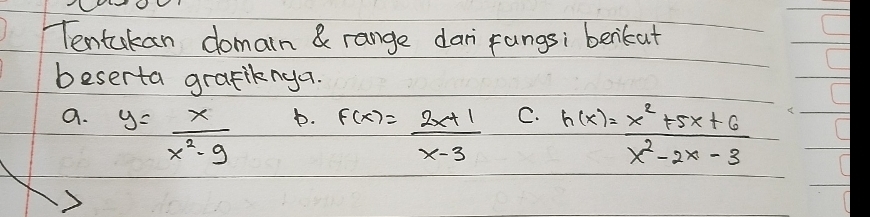 Tentukan domain & range dari fungsi berikut
beserta grafiknya.
a. y = x / x² - 9 b. f(x) = 2x+1 / x-3 c. h(x) = x² + 5x + 6 / x² - 2x - 3